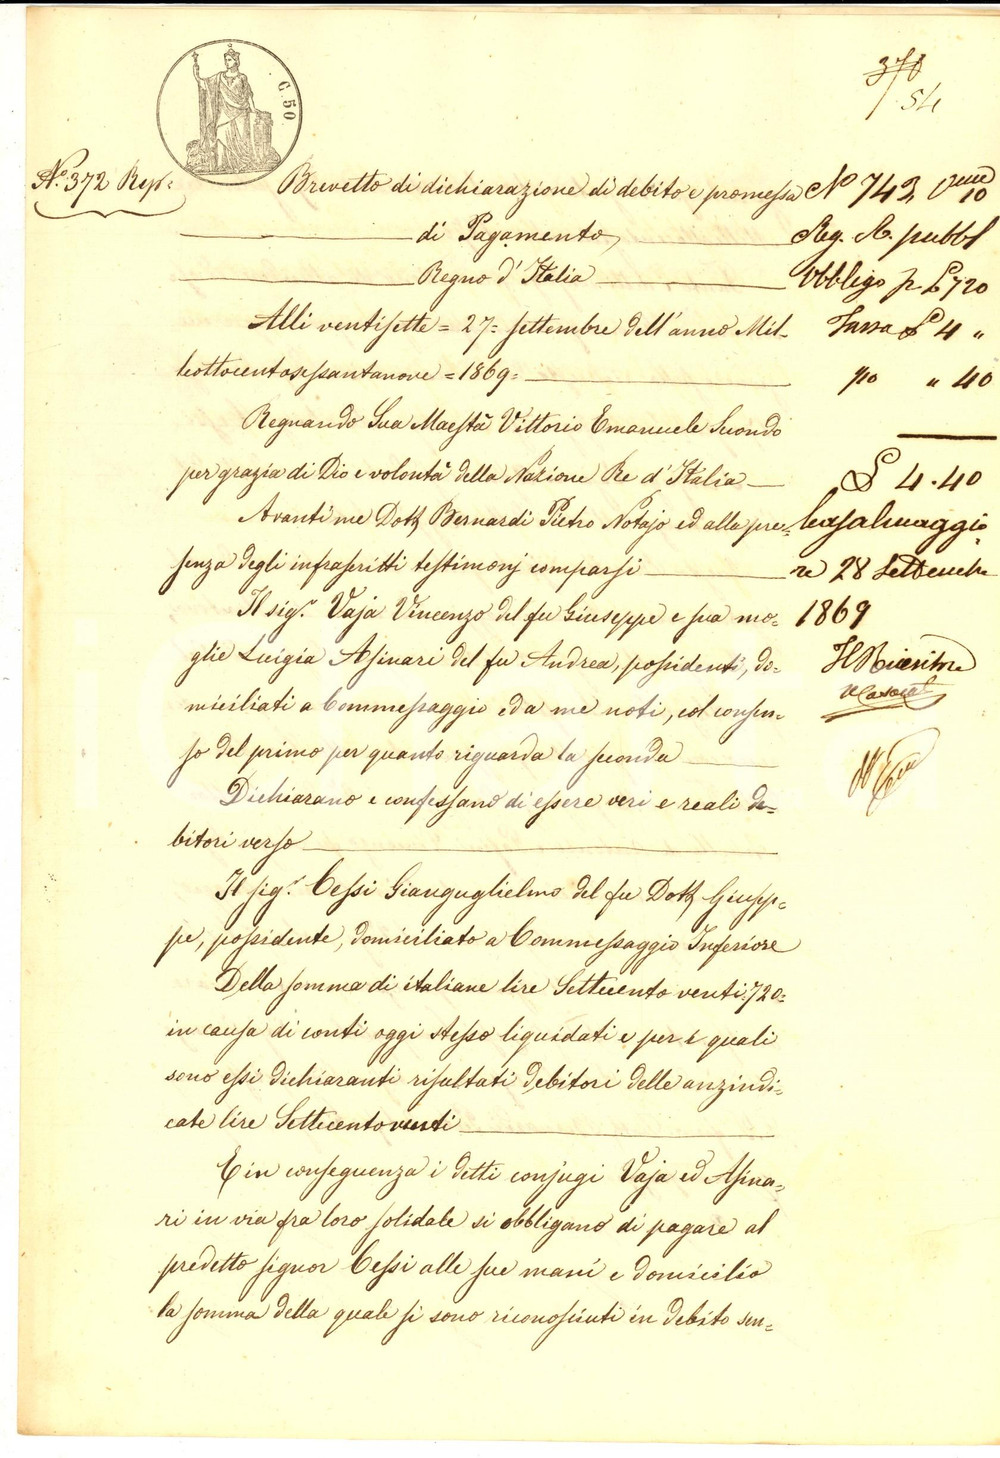 370
54
C. 50
N.° 372 Rep.
Brevetto di dichiarazione di debito e promessa
di Pagamento
Regno d'Italia
Alli ventisette = 27 = settembre dell'anno Mil-
leottocentosessantanove = 1869 =
Regnando Sua Maestà Vittorio Emanuele Secondo
per grazia di Dio e volontà della Nazione Re d'Italia
Avanti me Dott Bernardi Pietro Notajo ed alla pre-
senza degli infrascritti testimonj comparsi
Il sig.r Vaja Vincenzo del fu Giuseppe e sua mo-
glie Luigia Asinari del fu Andrea, possidenti, do-
miciliati a Commessaggio ed a me noti, col consen-
so del primo per quanto riguarda la seconda
Dichiarano e confessano di essere veri e reali de-
bitori verso
Il sig.r Cessi Gianguglielmo del fu Dott Giusep-
pe, possidente, domiciliato a Commessaggio Inferiore
Della somma di italiane lire Settecento venti 720=
in causa di conti oggi stesso liquidati e per i quali
sono essi dichiaranti risultati debitori delle anzindi-
cate lire Settecentoventi
E in conseguenza i detti conjugi Vaja ed Asina-
ri in via fra loro solidale si obbligano di pagare al
predetto signor Cessi alle sue mani e domicilio
la somma della quale si sono riconosciuti in debito sen-
N° 743
10
Reg. A. pubbl
Obbligo p £ 720
Tassa £ 4 "
" 40
£ 4.40
Casalmaggio
re 28 Settembre
1869
Il Ricevitore